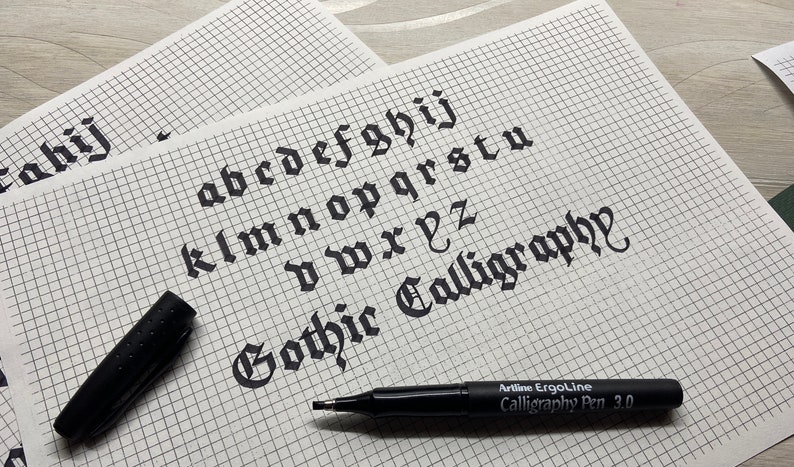 abcdefghij
klmnopqrstu
vwxyz
Gothic Calligraphy
Artline ErgoLine
Calligraphy Pen 3.0